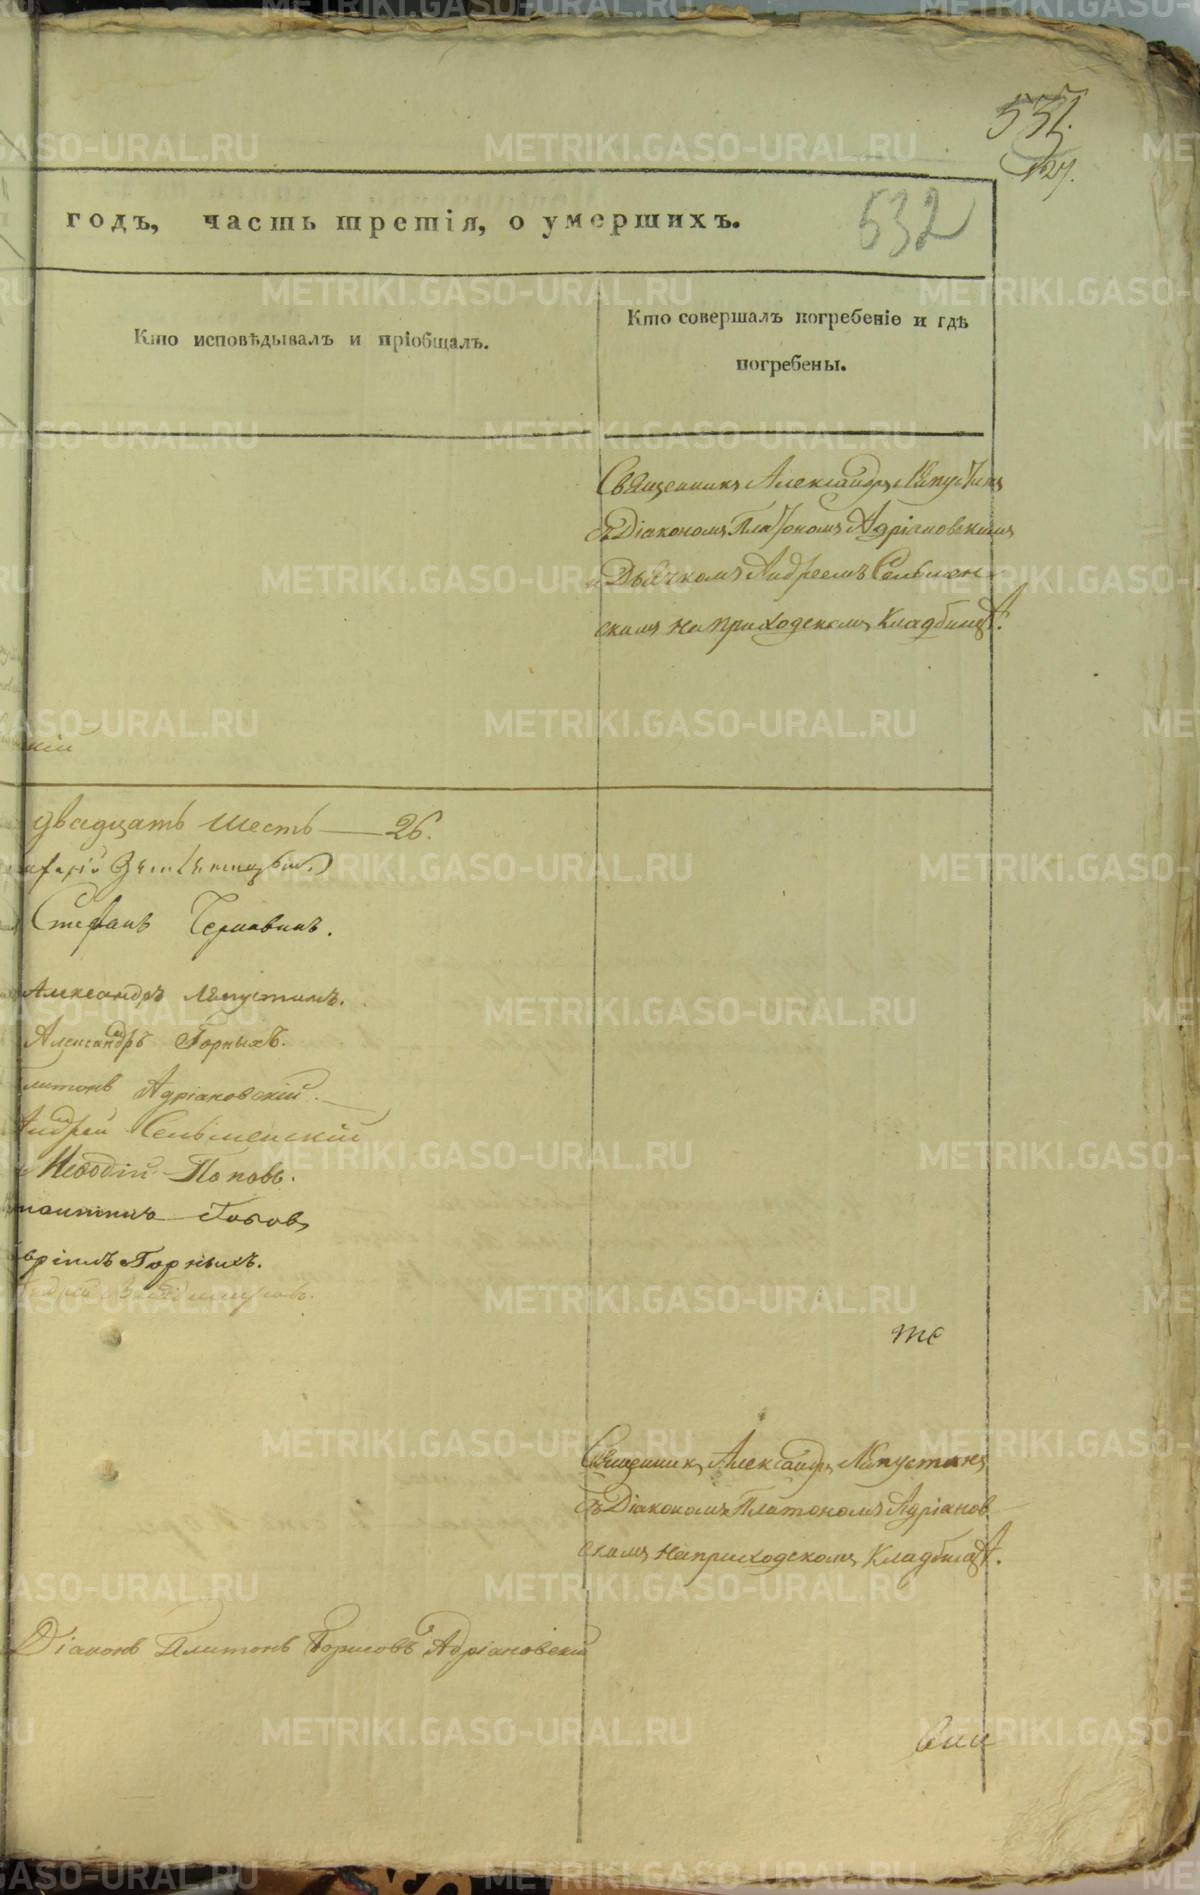 531.
127.
532
годъ, часть третія, о умершихъ.
Кто исповѣдывалъ и пріобщалъ.
Кто совершалъ погребеніе и гдѣ
погребены.
Священникъ Александръ Капустинъ
съ Діакономъ Платономъ Адріановскимъ
и Дьячкомъ Андреемъ Сельмен-
скимъ на приходскомъ кладбищѣ.
кій
двадцать шесть — 26.
Стефанъ Чернавинъ.
Александръ Капустинъ.
Александръ Горныхъ.
латонъ Адріановскій.
Андрей Сельменскій
Меѳодій Поповъ.
Горныхъ.
те
Священникъ Александръ Капустинъ
съ Діакономъ Платономъ Адріанов
скимъ на приходскомъ кладбищѣ.
Діаконъ Платонъ Борисовъ Адріановскій
METRIKI.GASO-URAL.RU